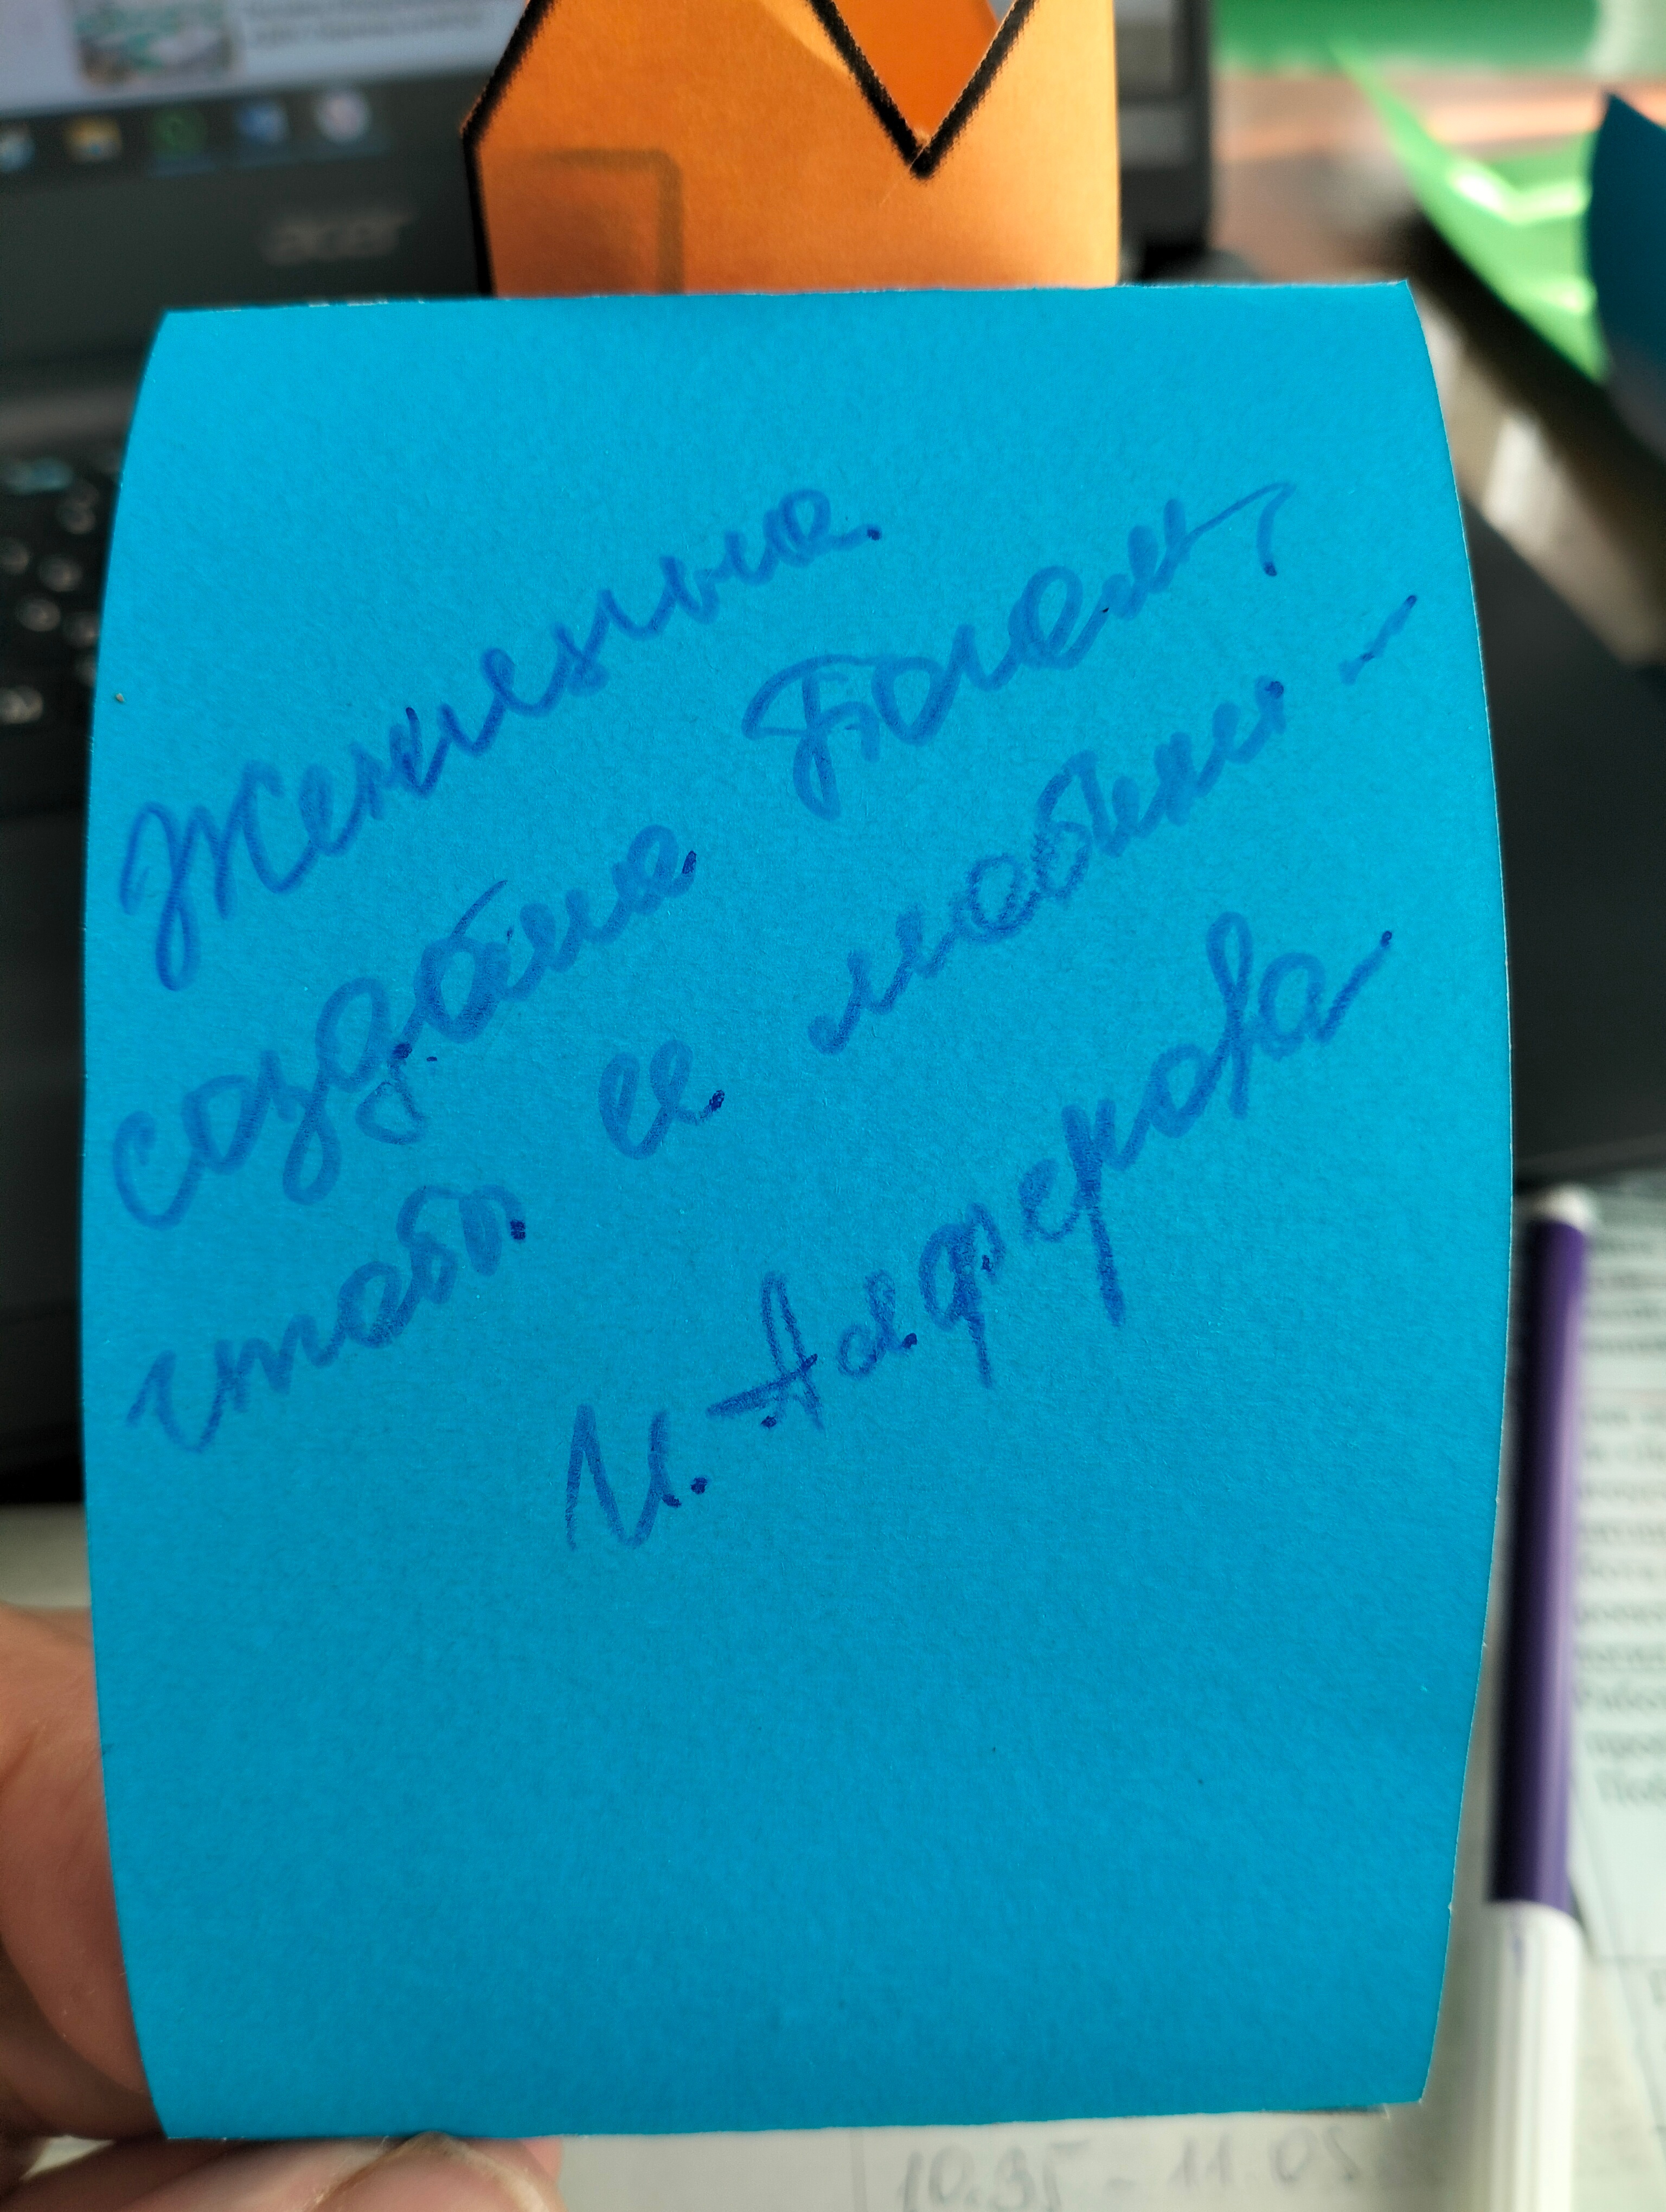 acer
Женщина
создана Богом,
чтоб ее любили -
И. Алферова
10.35 - 11.05